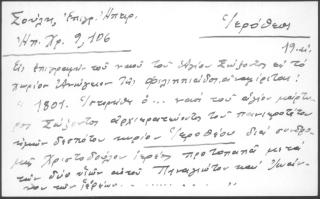 Σούλης, Ἐπιγρ. Ἠπειρ.
Ἱερόθεος
Ἠπ. Χρ. 9, 106
19. αἰ.
Εἰς ἐπιγραφὴν τοῦ ναοῦ τοῦ Ἁγίου Σώζοντος εἰς τὸ
χωρίον Ἀνώγειον τῆς Φιλιππιάδος ἀναφέρεται:
"1801. Ἱστορήθη ὁ ... ναὸς τοῦ ἁγίου μάρτυ-
ρος Σώζοντος ἀρχιερατεύοντος τοῦ πανιερωτάτου
ἡμῶν δεσπότου κυρίου Ἱεροθέου διὰ συνδρο-
μῆς Χριστοδούλου ἱερέως πρωτοπαπᾶ μετὰ
τῶν δύο υἱῶν αὐτοῦ Παναγιώτου καὶ Ἰωάν-
νου τῶν ἱερέων